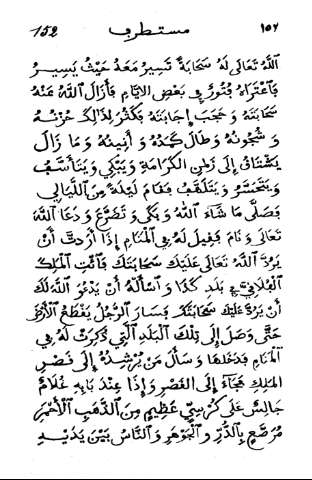 ١٥٢ مستطرف 152
اللَّهُ تَعَالَى لَهُ سَحَابَةً تَسِيرُ مَعَهُ حَيْثُ يَسِيرُ
فَاعْتَرَاهُ فُتُورٌ فِي بَعْضِ الْأَيَّامِ فَأَزَالَ اللَّهُ عَنْهُ
سَحَابَتَهُ وَحَجَبَ إِجَابَتَهُ فَكَثُرَ لِذَلِكَ حُزْنُهُ
وَشُجُونُهُ وَطَالَ كَمَدُهُ وَأَنِينُهُ وَمَا زَالَ
يَشْتَاقُ إِلَى زَمَنِ الْكَرَامَةِ وَيَبْكِي وَيَتَأَسَّفُ
وَيَتَحَسَّرُ وَيَتَلَهَّفُ فَقَامَ لَيْلَةً مِنَ اللَّيَالِي
فَصَلَّى مَا شَاءَ اللَّهُ وَبَكَى وَتَضَرَّعَ وَدَعَا اللَّهَ
تَعَالَى وَنَامَ فَقِيلَ لَهُ فِي الْمَنَامِ إِذَا أَرَدْتَ أَنْ
يَرُدَّ اللَّهُ تَعَالَى عَلَيْكَ سَحَابَتَكَ فَائْتِ الْمَلِكَ
الْفُلَانِيَّ فِي بَلَدِ كَذَا وَاسْأَلْهُ أَنْ يَدْعُوَ اللَّهَ لَكَ
أَنْ يَرُدَّ عَلَيْكَ سَحَابَتَكَ فَسَارَ الرَّجُلُ يَقْطَعُ الْأَرْضَ
حَتَّى وَصَلَ إِلَى تِلْكَ الْبَلَدِ الَّتِي ذُكِرَتْ لَهُ فِي
الْمَنَامِ فَدَخَلَهَا وَسَأَلَ مَنْ يُرْشِدُهُ إِلَى قَصْرِ
الْمَلِكِ فَجَاءَ إِلَى الْقَصْرِ وَإِذَا عِنْدَ بَابِهِ غُلَامٌ
جَالِسٌ عَلَى كُرْسِيٍّ عَظِيمٍ مِنَ الذَّهَبِ الْأَحْمَرِ
مُرَصَّعٍ بِالدُّرِّ وَالْجَوْهَرِ وَالنَّاسُ بَيْنَ يَدَيْهِ